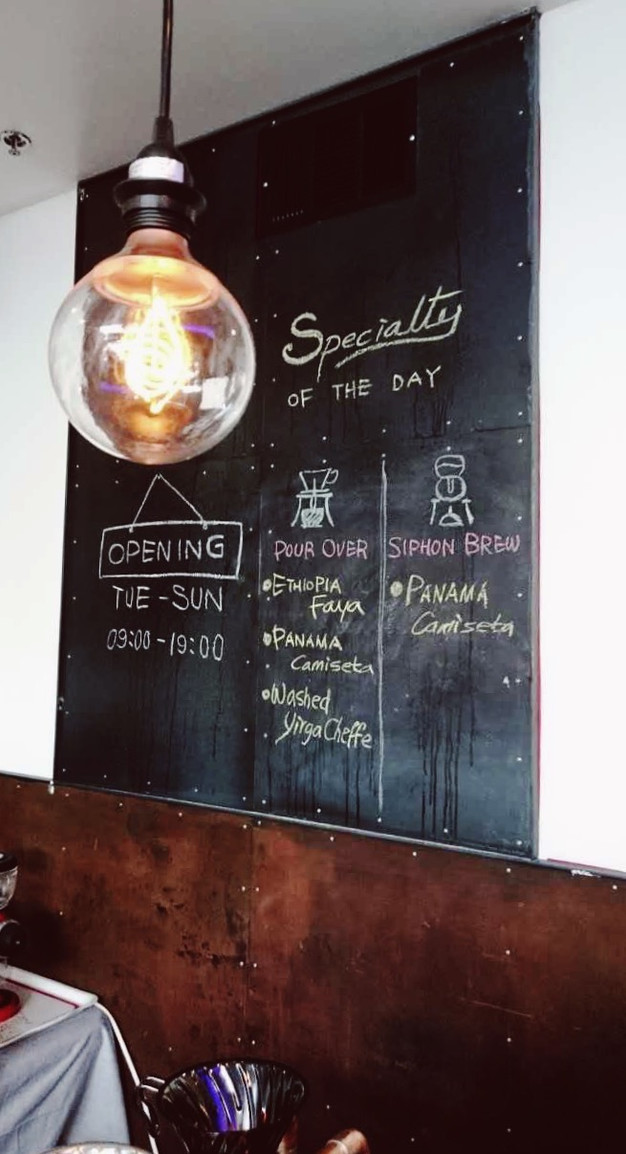 Specialty
OF THE DAY
OPENING
TUE-SUN
09:00-19:00
POUR OVER
•ETHIOPIA
Faya
•PANAMA
Camiseta
•Washed
YirgaCheffe
SIPHON BREW
•PANAMA
Camiseta